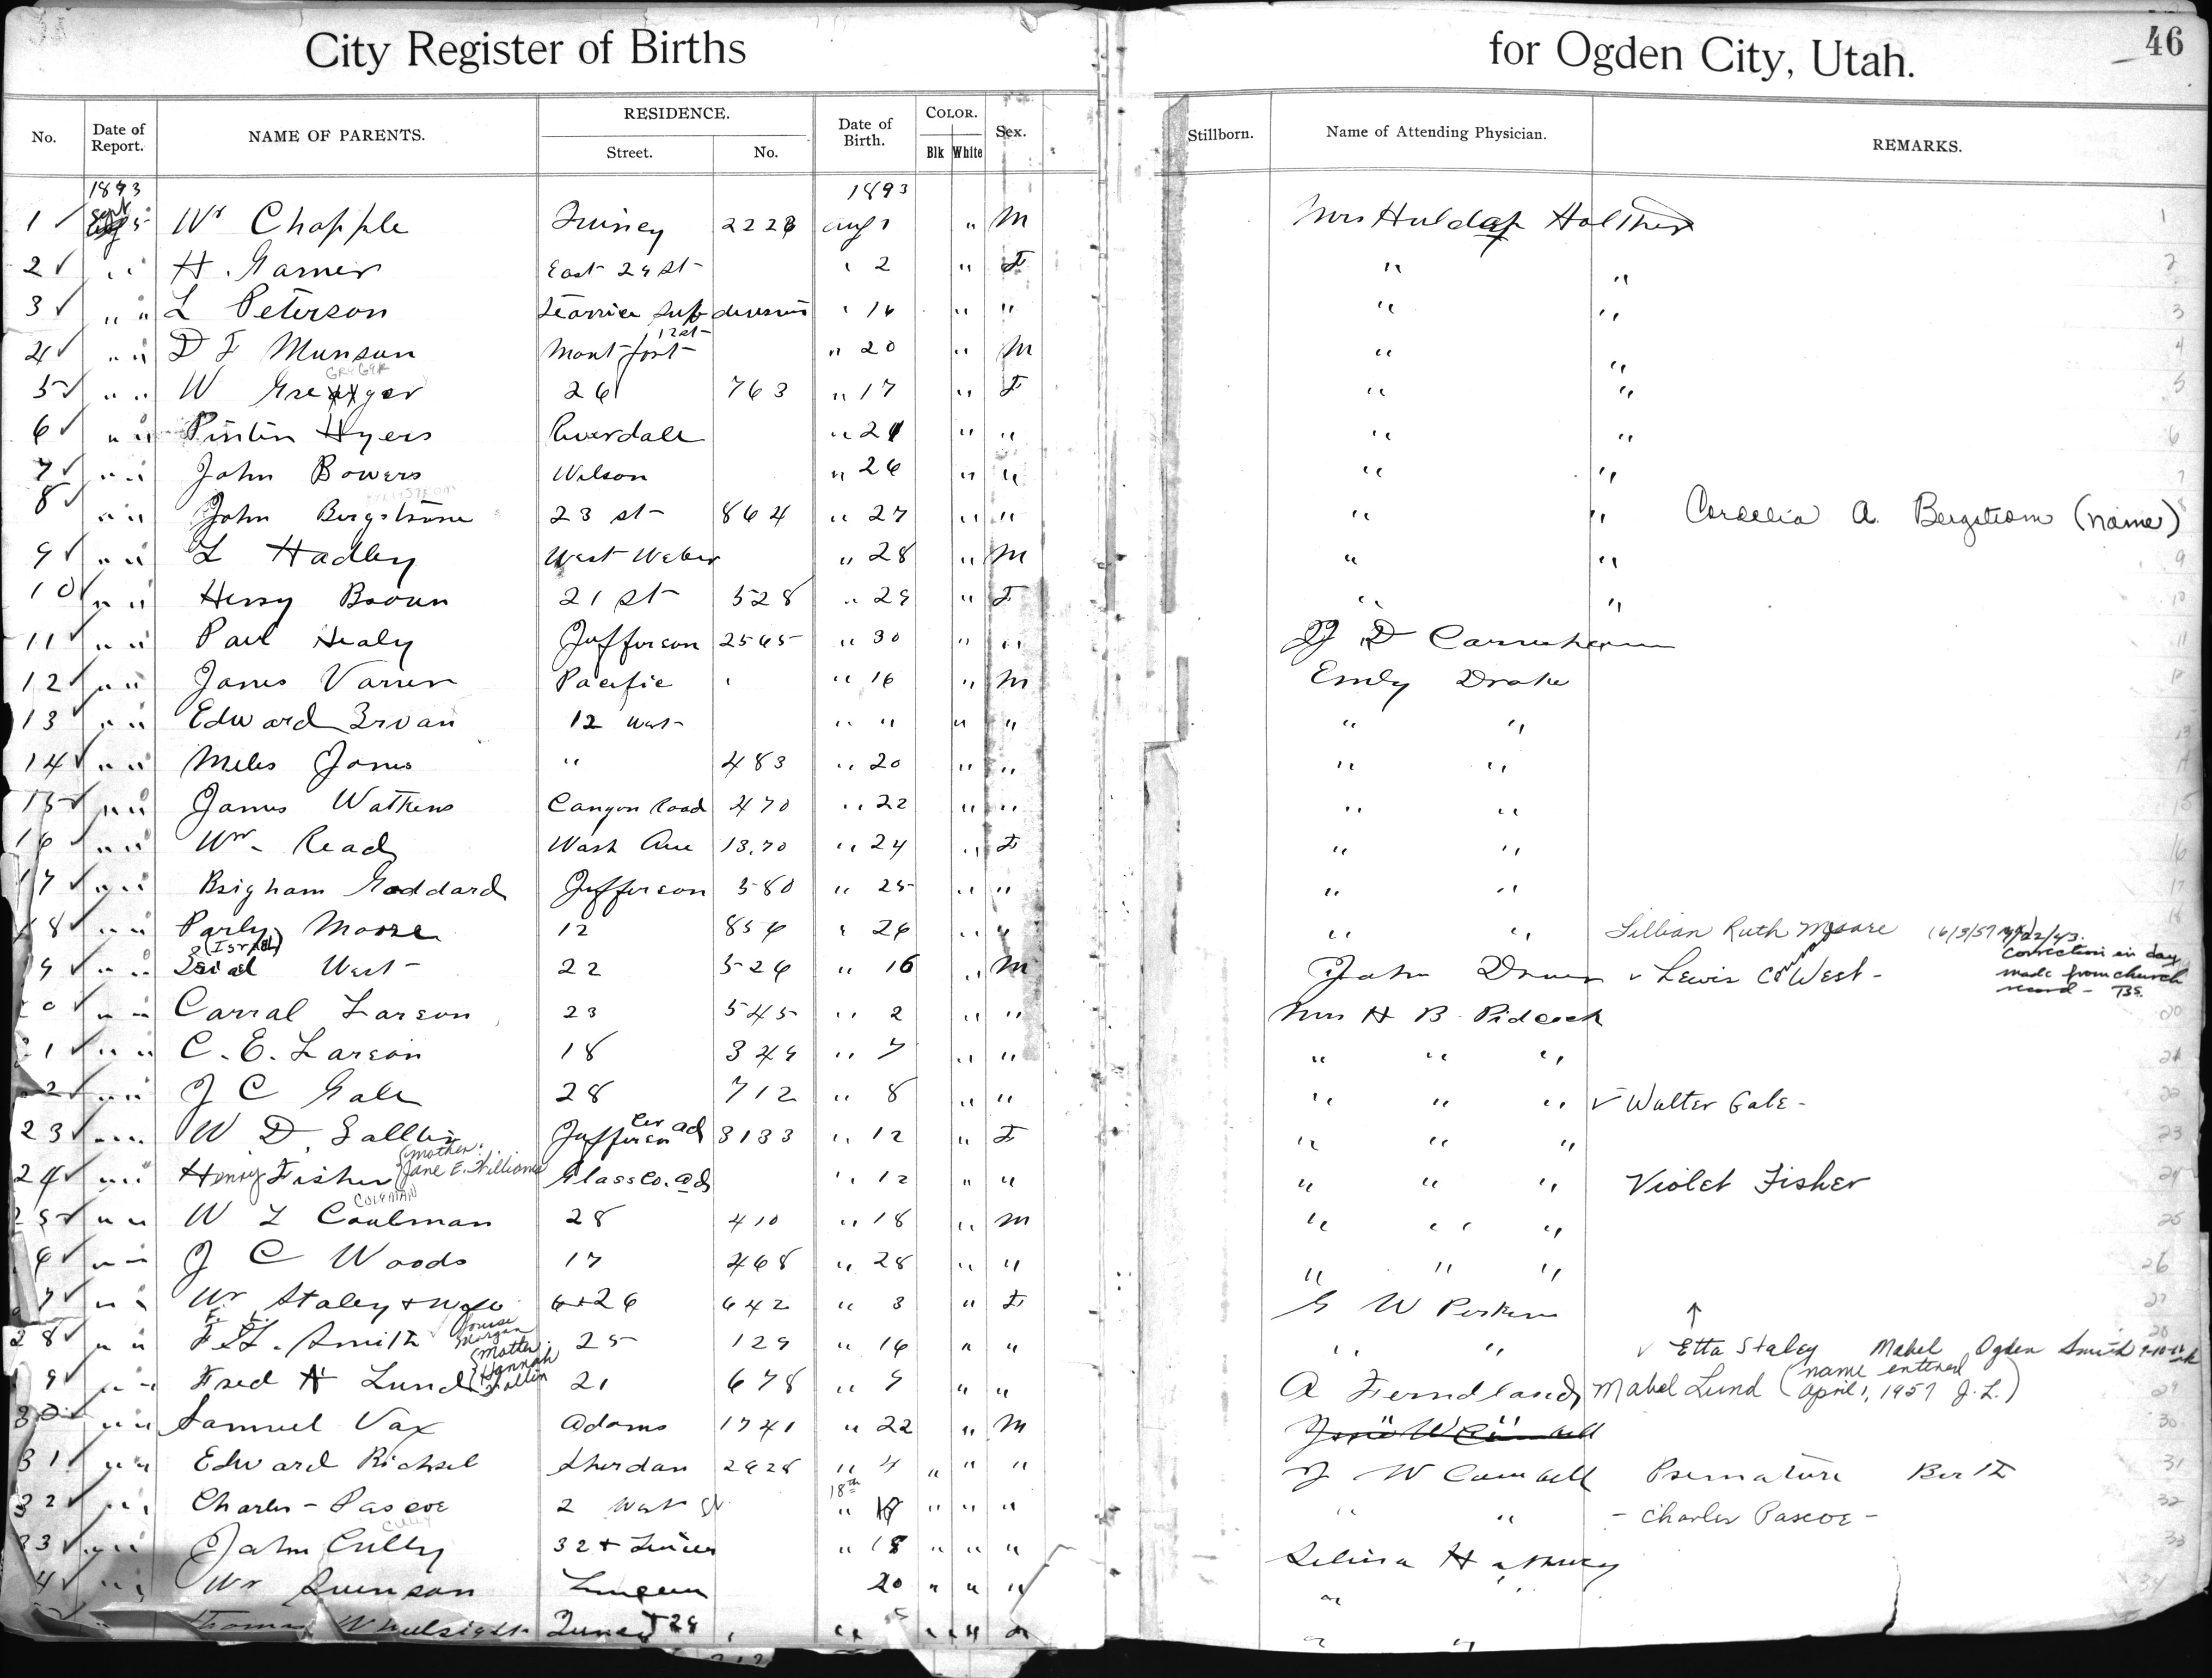 City Register of Births for Ogden City, Utah. 46
No. Date of Report. NAME OF PARENTS. RESIDENCE. Street. No. Date of Birth. COLOR. Blk White Sex. Stillborn. Name of Attending Physician. REMARKS.
1893 1893
1 ✓ Sept 5 Wr Chapple Quincy 2223 aug 1 " M Mrs Huldah 1
2 ✓ " H. Garner East 29 St " 2 " F " " 2
3 ✓ " " L Peterson division " 16 " " " " 3
4 ✓ " " D F Munson 12 st " 20 " M " " 4
5 ✓ " " W GREGER 26 763 " 17 " F " " 5
6 ✓ " " Hyers Riverdale " 21 " " " " 6
7 ✓ " " John Bowers Wilson " 26 " " " " 7
8 ✓ " " John Bergstrom 23 st 864 " 27 " " " " Cordelia A. Bergstrom (name) 8
9 ✓ " " L Hadley West Weber " 28 " M " " 9
10 ✓ " " Henry Brown 21 st 528 " 29 " F " " 10
11 ✓ " " Paul Healy Jefferson 2565 " 30 " " D 11
12 ✓ " " James Pacific " 16 " M Emily Drake
13 ✓ " " Edward 12 West " " " " " " 13
14 ✓ " " Miles Jones " 483 " 20 " " " "
15 ✓ " " James Watkins Canyon Road 470 " 22 " " " " 15
16 ✓ " " Wm. Read Wash Ave 13.70 " 24 " F " " 16
17 ✓ " " Brigham Goddard Jefferson 580 " 25 " " " " 17
18 ✓ " " Parley Moore 12 856 " 26 " " " " Lillian Ruth Moore 7/22/43. 18
19 ✓ " " (Israel) West 22 526 " 16 " M John ✓ Lewis West - Correction in day made from church record - TBS.
20 ✓ " " Carral Larson 23 545 " 2 " " Mrs H B Pidcock 20
21 ✓ " " C. E. Larson 18 349 " 7 " " " " " 21
22 ✓ " " J C Gale 28 712 " 8 " " " " " ✓ Walter Gale - 22
23 ✓ " " W D. Jefferson ad 3133 " 12 " F " " " 23
24 ✓ " " Henry Fisher {mother: Jane E. Williams Glass Co. ad " 12 " " " " " Violet Fisher 24
25 ✓ " " W L Coulman COLEMAN 28 410 " 18 " M " " " 25
26 ✓ " " J C Woods 17 468 " 28 " " " " " 26
27 ✓ " " Wr Staley + Wife 6+26 642 " 3 " F G W Perkins ↑ 27
28 ✓ " " Smith Louise Morgan 25 129 " 16 " " " " ✓ Etta Staley Mabel Ogden Smith 28
29 ✓ " " Fred Lund {Mother Hannah 21 678 " 9 " " A Ferndland Mabel Lund (name entered April 1, 1957 J. L.) 29
30 ✓ " " Samuel Vax Adams 1741 " 22 " M 30
31 ✓ " " Edward 2928 " 4 " " " J W Premature Birth 31
32 ✓ " " Charles Pascoe 2 West St " 18th " " " " " - Charles Pascoe - 32
33 ✓ " " John Cully 32 + " 18 " " " 33
34 ✓ " " Wr 20 " " " " " 34
Thomas 28 " " " " " "